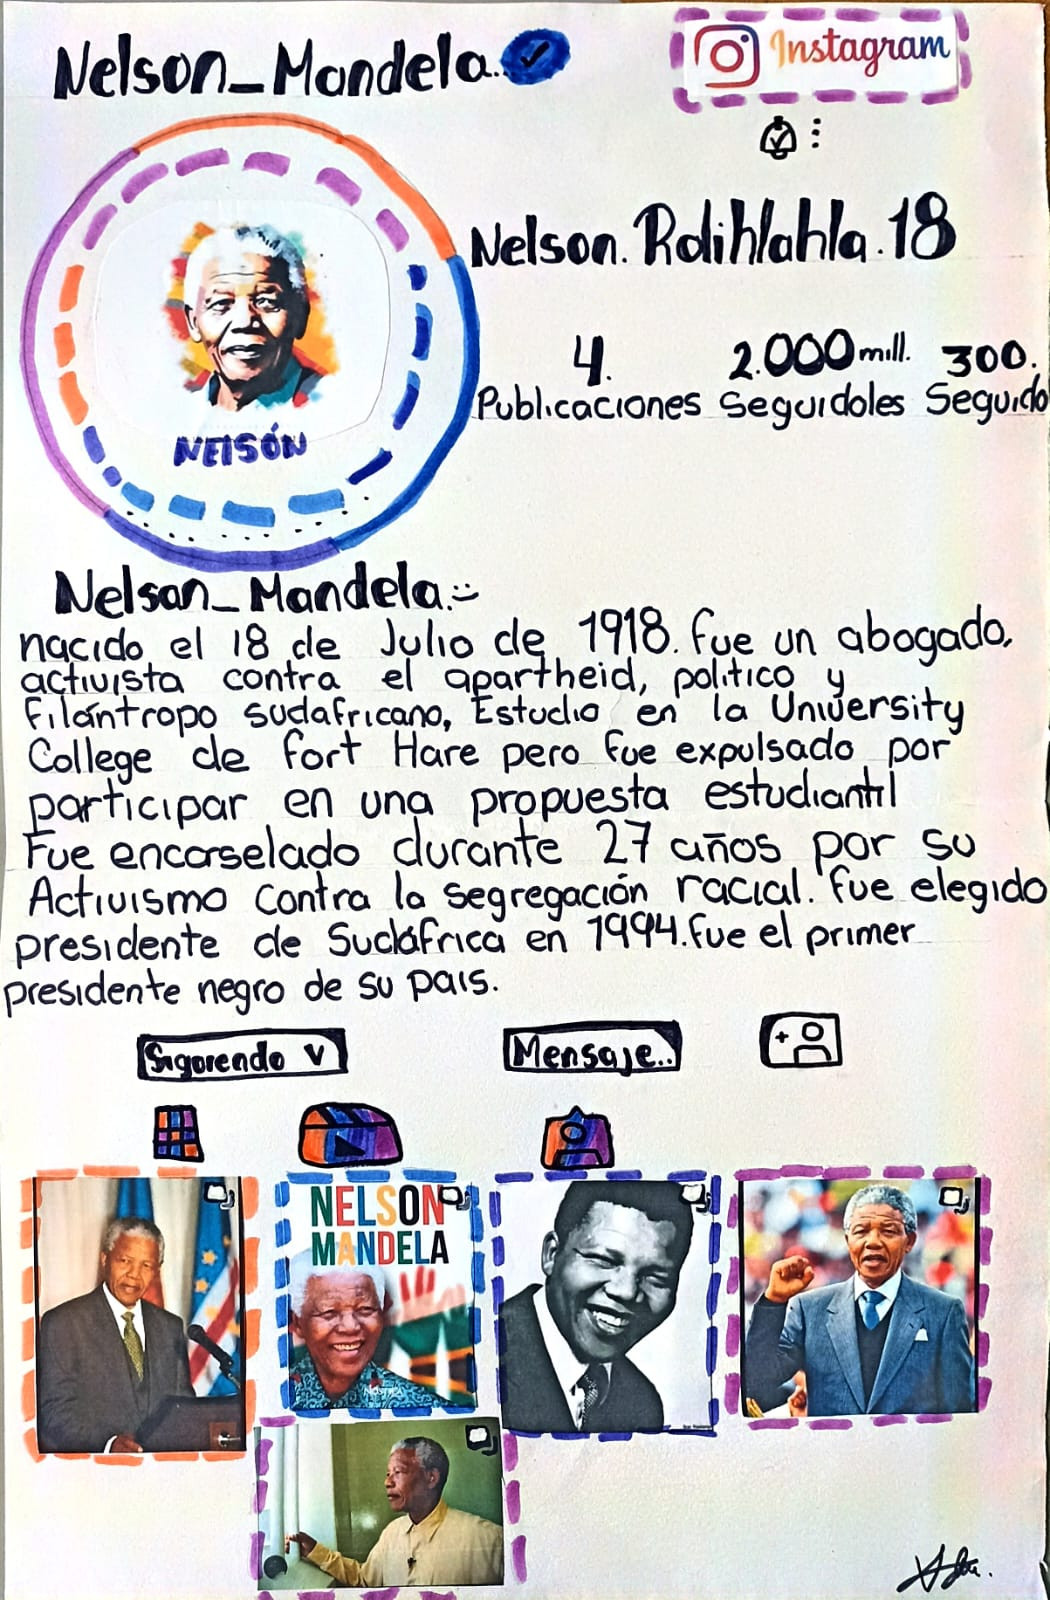 Nelson_Mandela..
Instagram
Nelson. Rolihlahla.18
4. 2.000 mill. 300.
Publicaciones Seguidoles Seguido
NElSÓN
Nelson_Mandela.
nacido el 18 de Julio de 1918. fue un abogado,
activista contra el apartheid, politico y
Filántropo sudafricano, Estudio en la University
College de Fort Hare pero fue expulsado por
participar en una propuesta estudiantil
Fue encarselado durante 27 años por su
Activismo contra la segregación racial. fue elegido
presidente de Sudáfrica en 1994. fue el primer
presidente negro de su pais.
Sigurendo v Mensaje..
NELSON
MANDELA